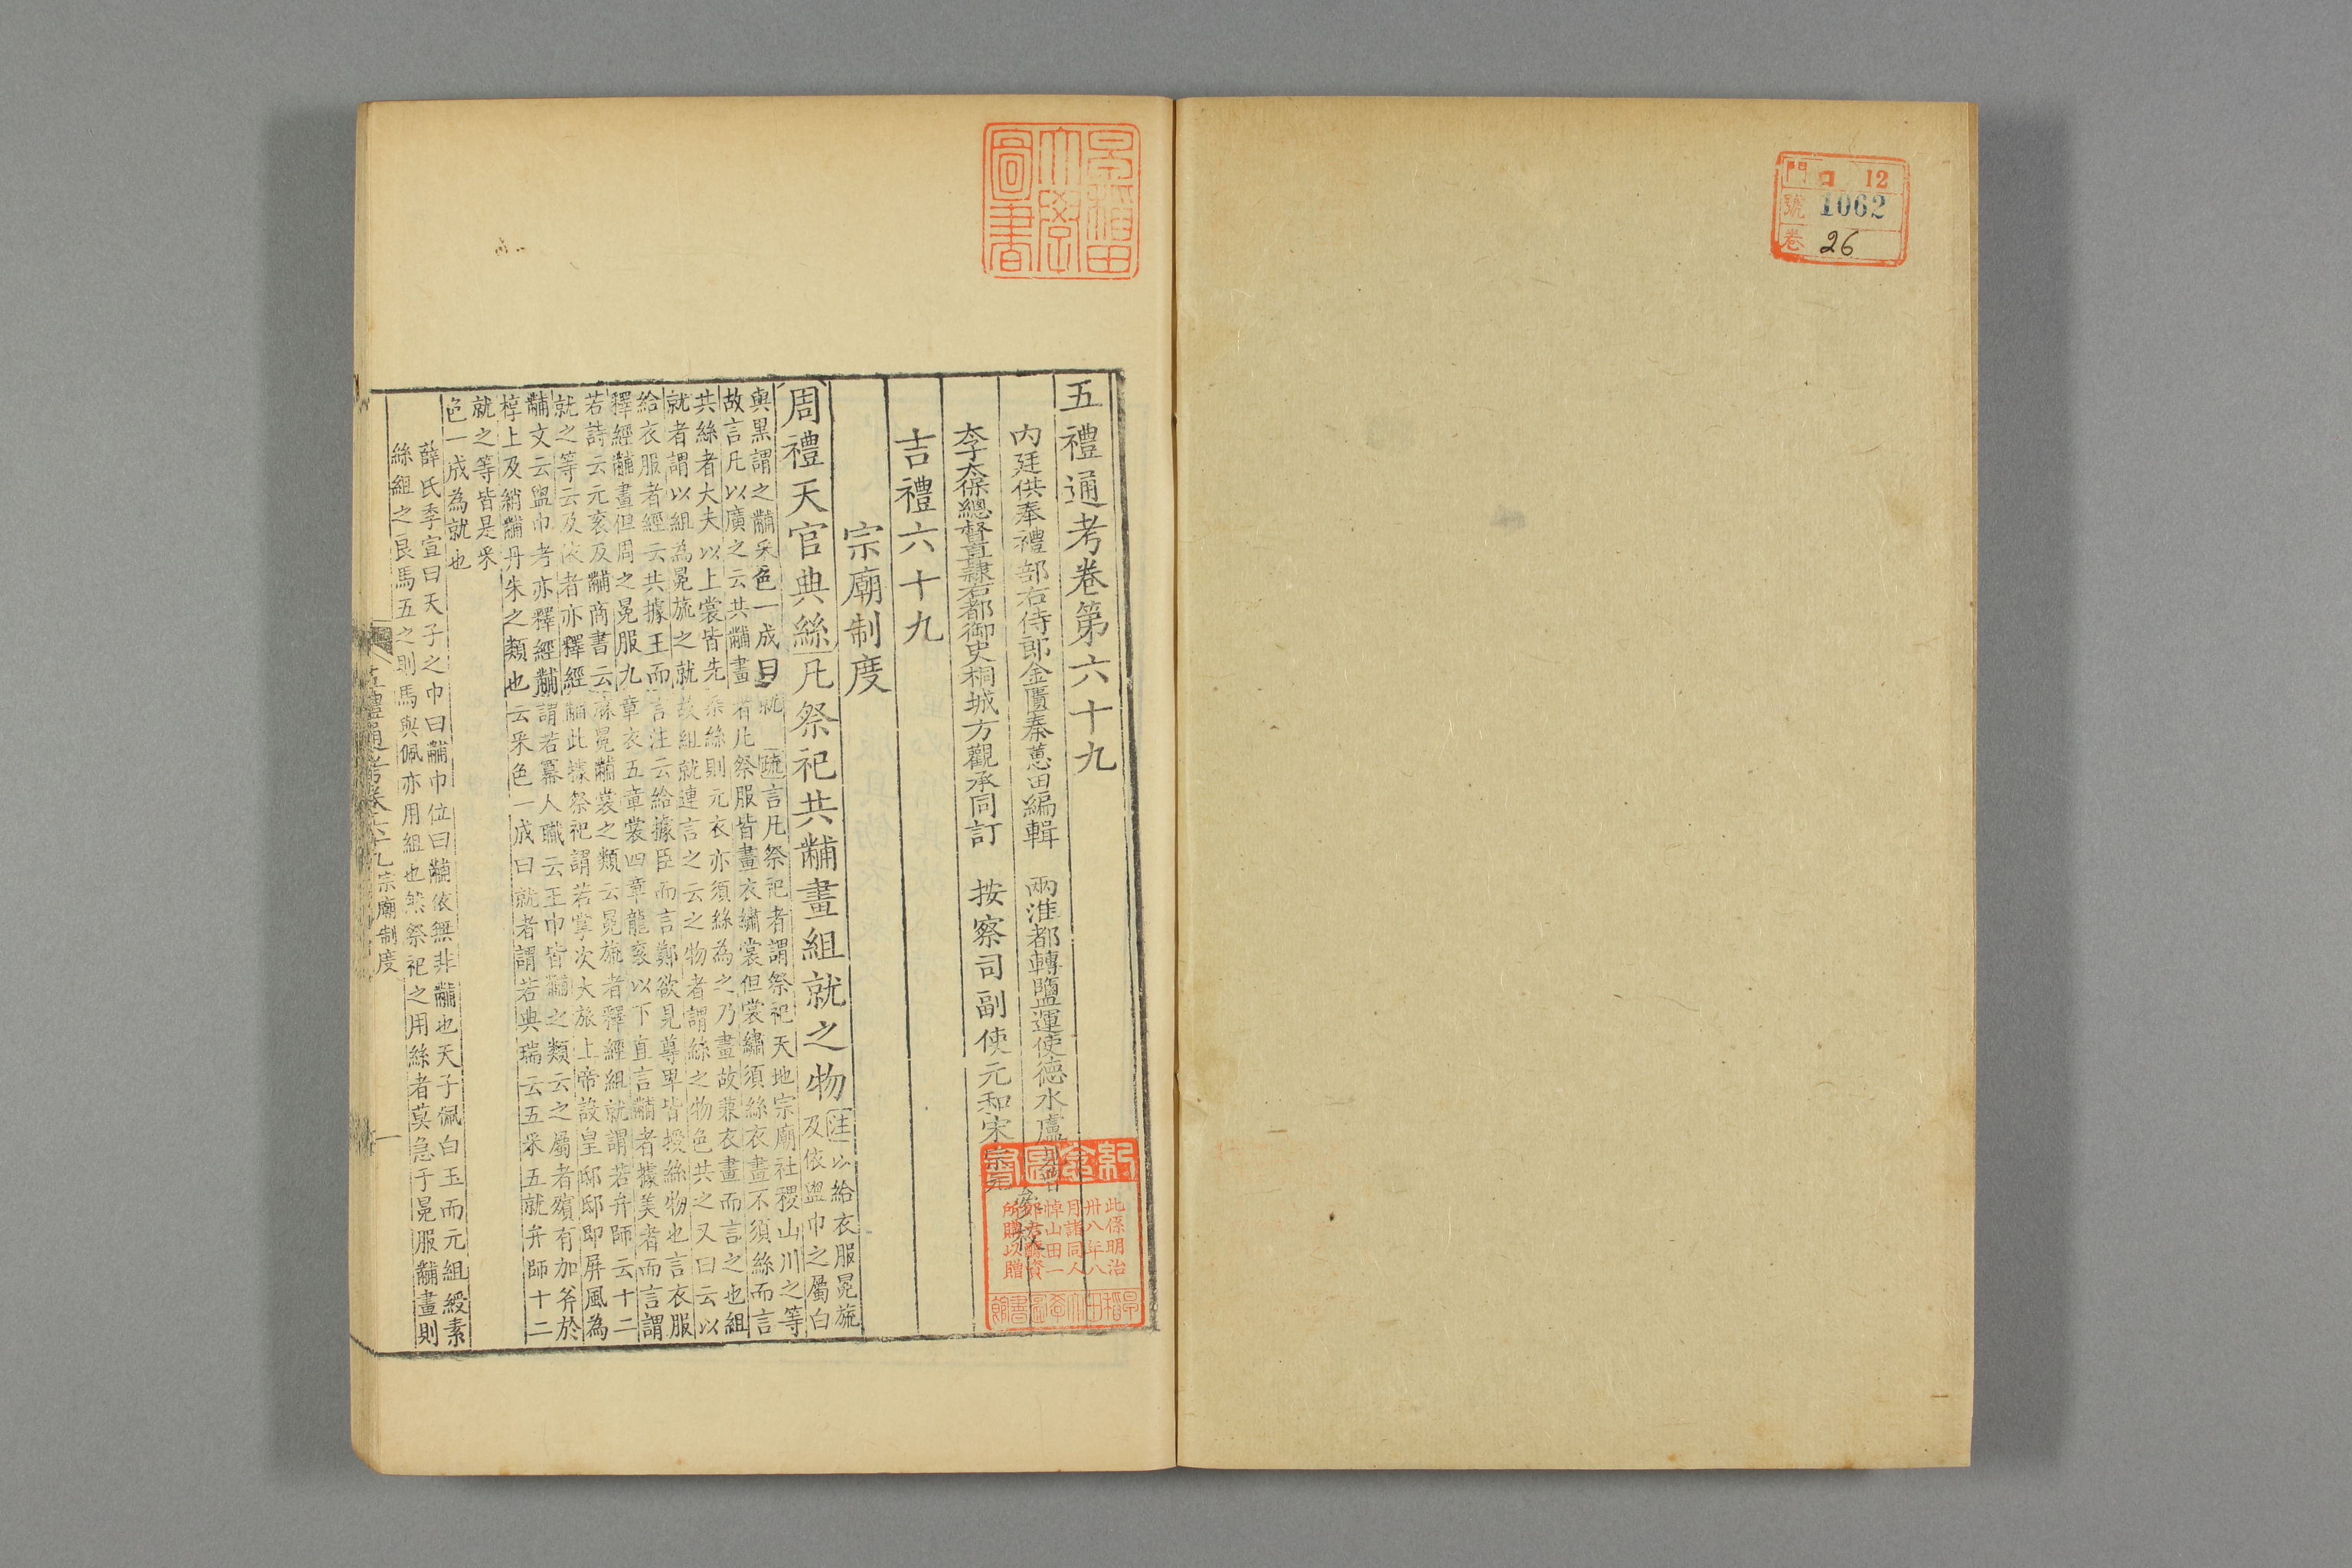 門 口 12
號 1062
卷 26
早稲田大學圖書
五禮通考卷第六十九
內廷供奉禮部右侍郎金匱秦蕙田編輯 兩淮都轉鹽運使德水盧
太子太保總督直隸右都御史桐城方觀承同訂 按察司副使元和宋宗元
參校
吉禮六十九
宗廟制度
周禮天官典絲凡祭祀共黼畫組就之物注以給衣服冕旒
及依盥巾之屬白
與黑謂之黼采色一成曰就 疏言凡祭祀者謂祭祀天地宗廟社稷山川之等
故言凡以廣之云共黼畫者凡祭服皆畫衣繡裳但裳繡須絲衣畫不須絲而言
共絲者大夫以上裳皆先染絲則元衣亦須絲為之乃畫故兼衣畫而言之也組
就者謂以組為冕旒之就故組就連言之云之物者謂絲之物色共之又曰云以
給衣服者經云共據王而言注云給據臣而言鄭欲見尊卑皆授絲物也言衣服
釋經黼畫但周之冕服九章衣五章裳四章龍衮以下直言黼者據美者而言謂
若詩云元衮及黼商書云麻冕黼裳之類云冕旒者釋經組就謂若弁師云十二
就之等云及依者亦釋經黼此據祭祀謂若掌次大旅上帝設皇邸邸即屏風為
黼文云盥巾考亦釋經黼謂若冪人職云王巾皆黼之類云之屬者殯有加斧於
椁上及綃黼丹朱之類也云采色一成曰就者謂若典瑞云五采五就弁師十二
就之等皆是采
色一成為就也
薛氏季宣曰天子之巾曰黼巾位曰黼依無非黼也天子佩白玉而元組綬素
絲組之良馬五之則馬與佩亦用組也然祭祀之用絲者莫急于冕服黼畫則
五禮通考卷六十九宗廟制度 一
此係明治
卅八年八
月諸同人
悼山田一
郎君醵資
所購以贈
早稲田大學圖書館